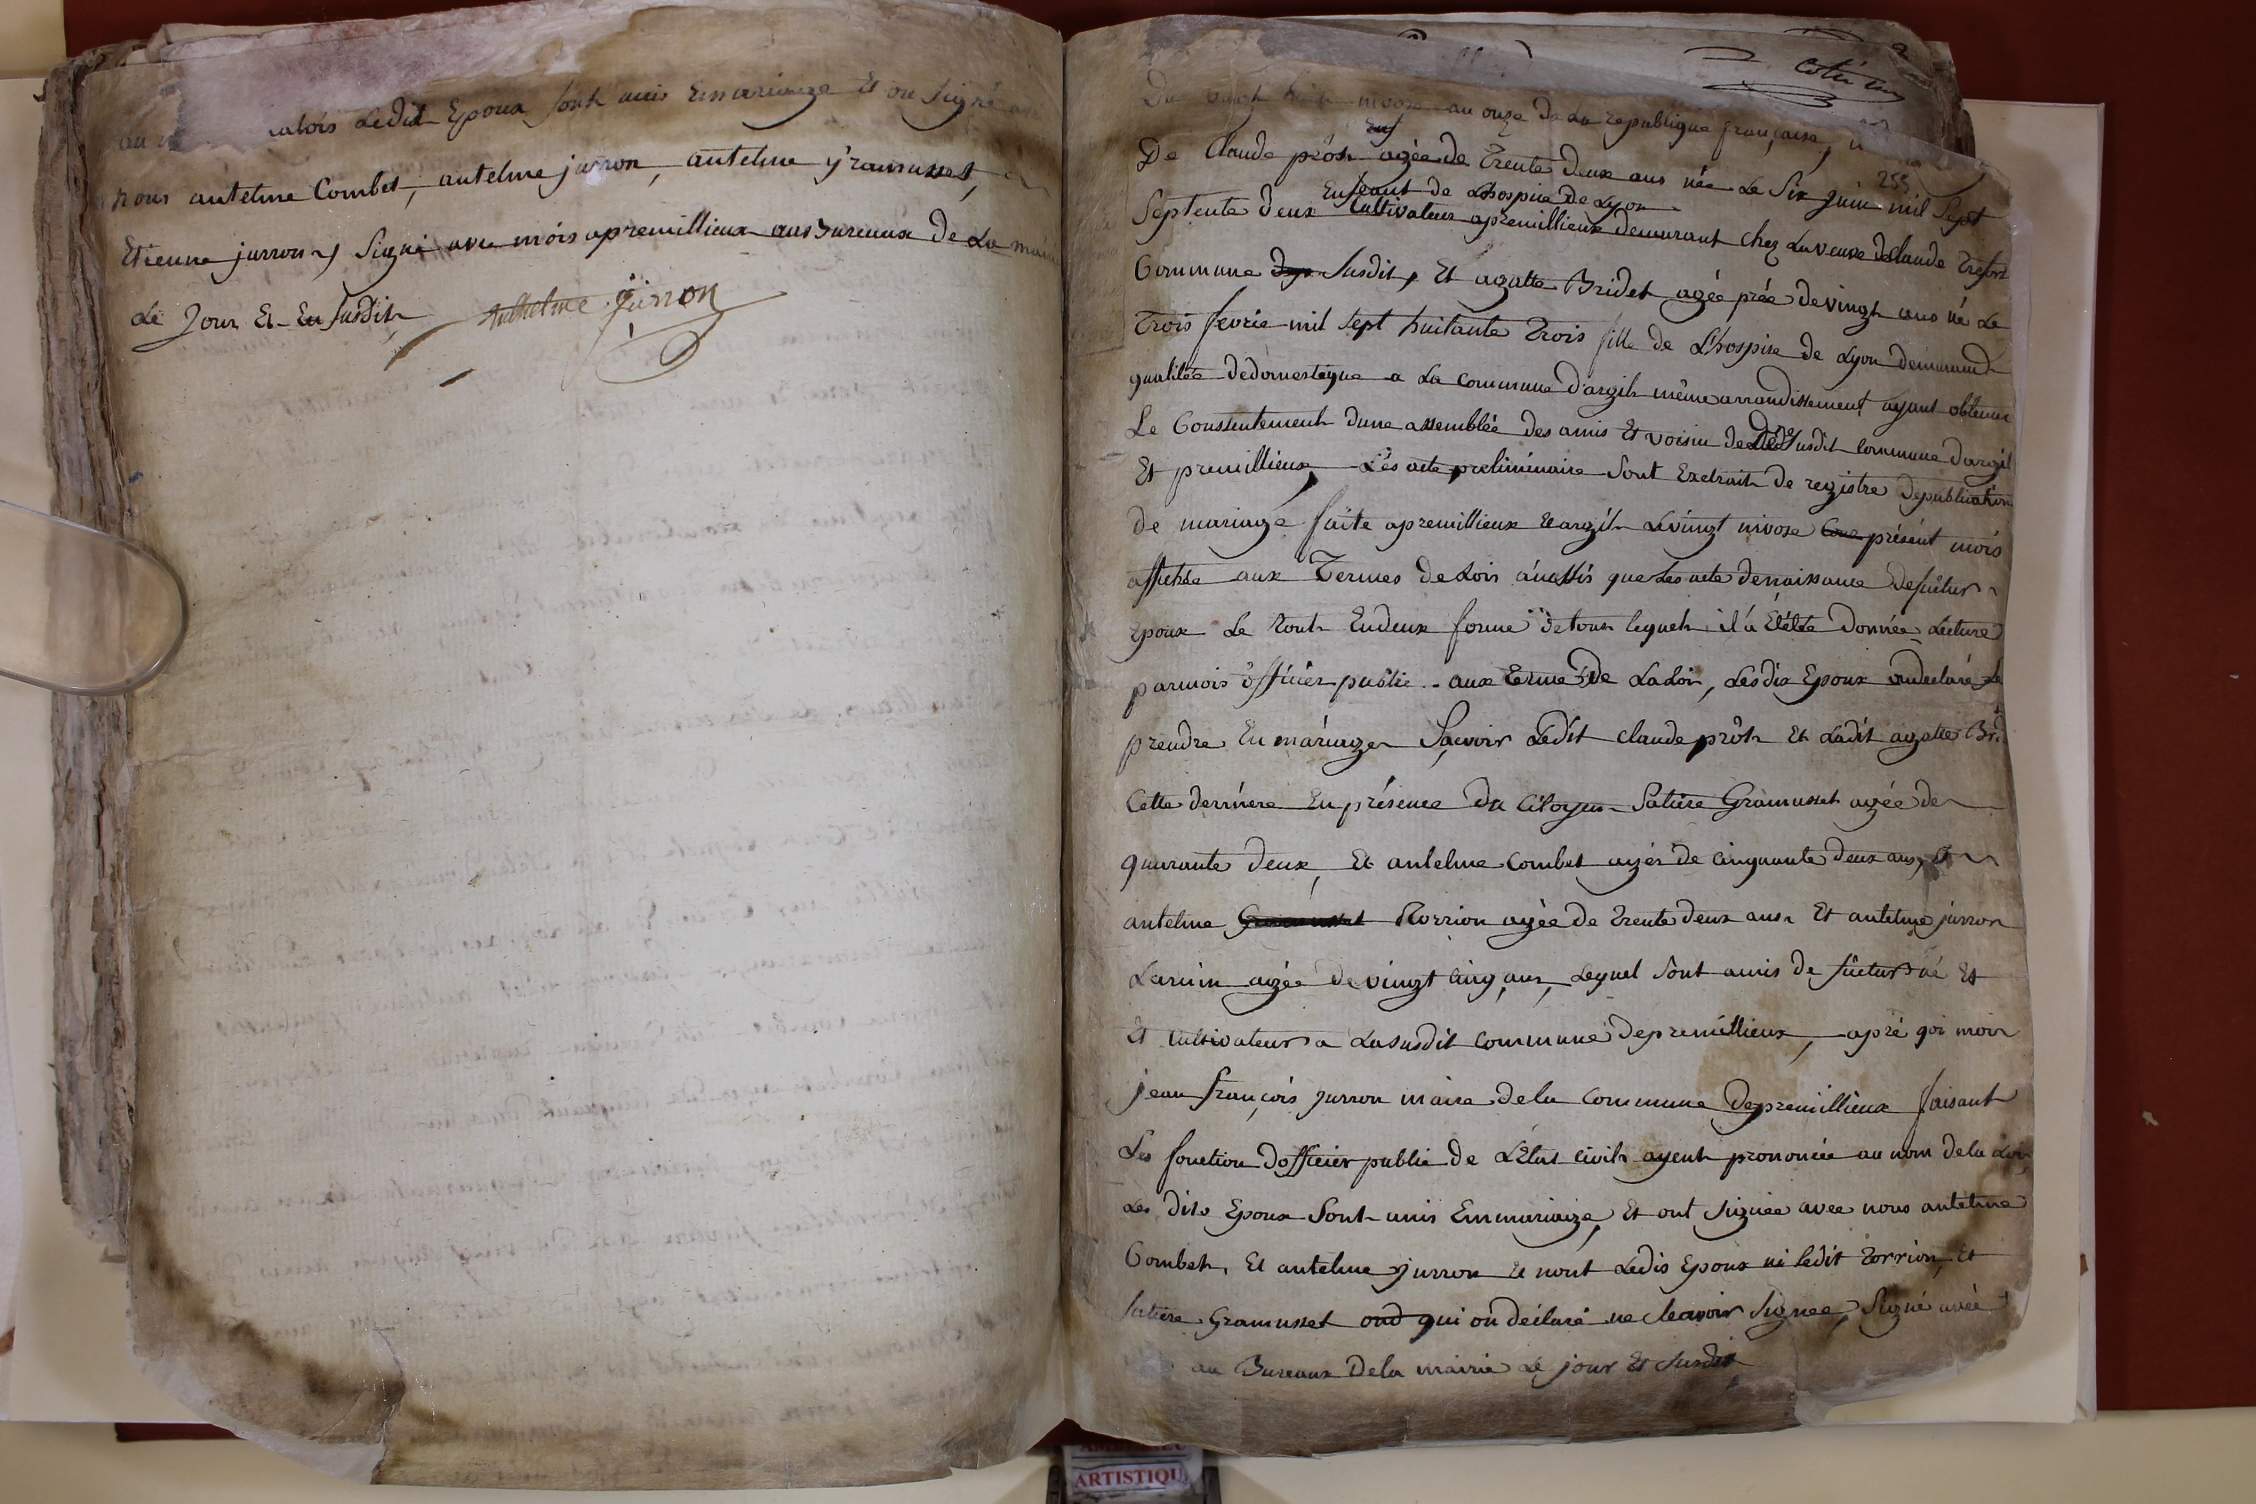 alois Ledit Epoux sont unis Enmariaze Et on Signé
nous antelme Combet, antelme jurron, antelme gramusset,
Etienne jurron, Signé avec mois apremillieux aux Bureaux De La
Le Jour Et En susdit
Anthelme Jurron
Du vingt nivose an onze De La republique française,
255
De Claude prôst agée de Trente Deux ans née Le Six juin mil Sept
Septente Deux Enfeant de Lhospice de Lyon
Cultivateur apremillieux demeurant chez La veuve
Commune Susdit, Et agatte Bridet agée prée De vingt ans né Le
Trois fevrie mil sept huitante Trois fille de L'hospise de Lyon demeurand
qualitée Dedomestique a La commune D'argis même arrondissement ayant obtenue
Le Constentement Dune assemblée des amis Et voisin de susdit commune Dargis
Et premillieux, Lès acte preliminaire Sont Exetrait De registre Depublication
de mariage faite apremillieux Et argis Levingt nivose présent mois
affichée aux Termes De Lois que Les acte denaissance Defuetur
Epoux Le tout Endeux forme De tous lequels il à Etétée Donnée Lecture
parmois officier public aux Terme De LaLoi, Lesdis Epoux ondeclaré Se
prendre En mariage Sçavoir Ledit Claude prôst Et Ladit agatte
Cette dernière En présence Du Citoyen Satire Gramusset agée de
quarante Deux, Et antelme Combet agés de cinquante deux ans,
antelme Gramusset Rorrion agée De Trente Deux ans Et antelme jurron
Larmin agée De vingt Cinq ans, Lequel Sont amis de fuetur Et
Et Cultivateur a Lasusdit Commune Depremillieux, apré qoi mois
jean françois jurron maire de la Commune Depremillieux faisant
Les fonction Dofficier public De L'Etat civil ayent prononcée au nom de la Loi
Les Dits Epoux Sont unis Enmariaize, Et ont Signée avec nous antelme
Combet, Et antelme jurron Et nont Ledis Epoux ni ledit Rorrion, Et
satire Gramusset ond qui on Déclaré ne Scavoir Signee, Signé avée
au Bureaux De la mairie Le jour Et Susdit